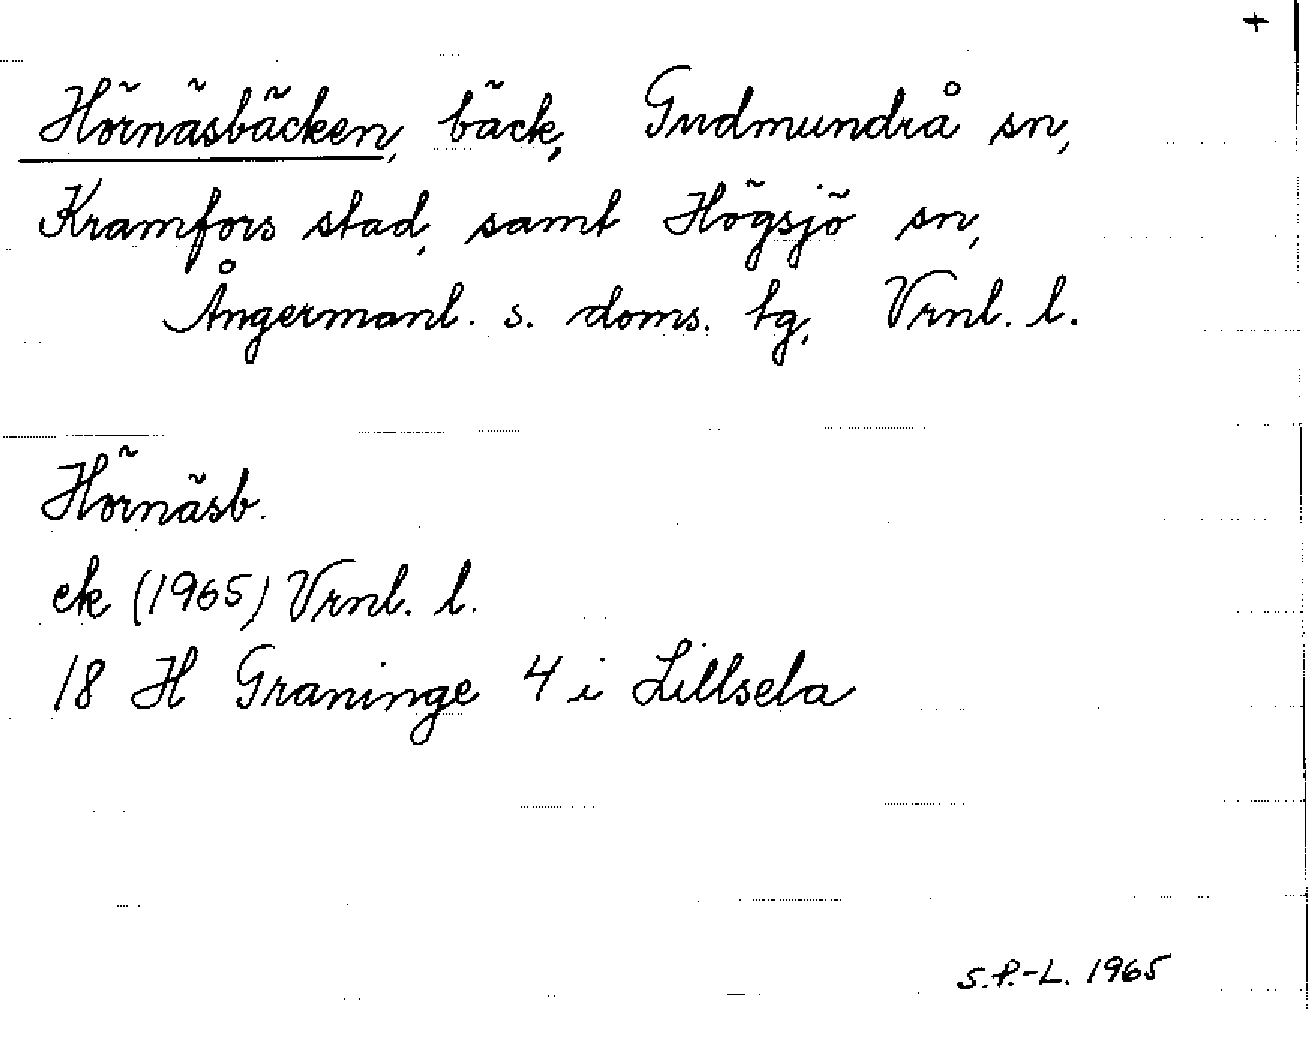 +
Hörnäsbäcken, bäck, Gudmundrå sn,
Kramfors stad, samt Högsjö sn,
Ångermanl. s. doms. tg, Vrnl. l.
Hörnäsb.
ek (1965) Vrnl. l.
18 H Graninge 4 i Lillsela
S.P.-L. 1965